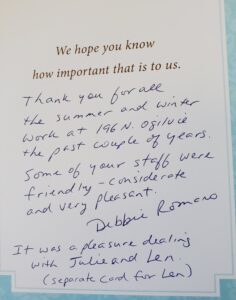 We hope you know
how important that is to us.
Thank you for all
the summer and winter
work at 196 N. Ogilvie
the past couple of years.
Some of your staff were
friendly - considerate
and very pleasant.
Debbie Romano
It was a pleasure dealing
with Julie and Len.
(separate card for Len)